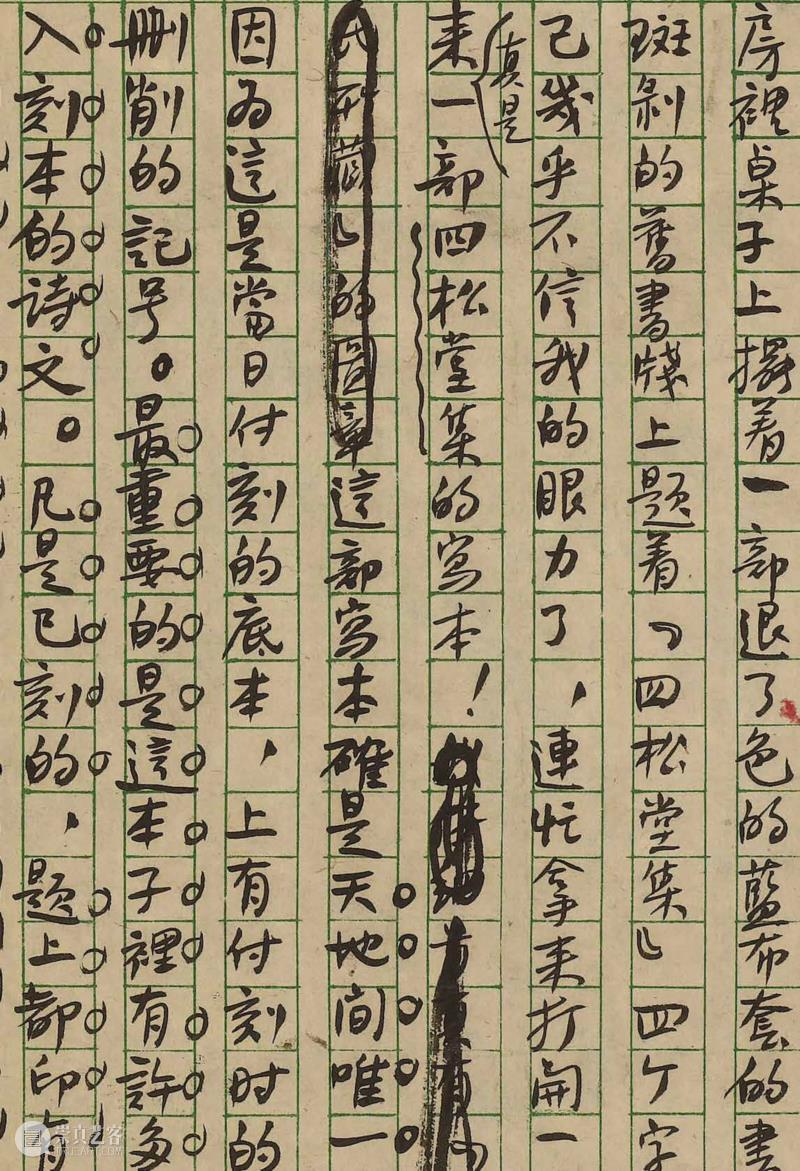 房裡桌子上擺着一部退了色的藍布套的書
斑剝的舊書牋上題着『四松堂集』四个字
己幾乎不信我的眼力了，連忙拿来打開一
来真是一部四松堂集的寫本！
藏』的圖章這部寫本確是天地间唯一
因为這是當日付刻的底本，上有付刻时的
刪削的記号。最重要的是這本子裡有許多
入刻本的詩文。凡是已刻的，题上都印有
崇真艺客